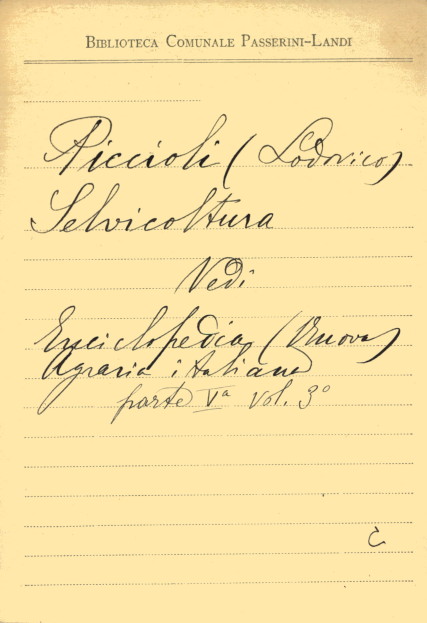 BIBLIOTECA COMUNALE PASSERINI-LANDI
Piccioli (Lodovico)
Selvicoltura
Vedi
Enciclopedia (Nuova)
Agraria italiana
parte Vª vol. 3º